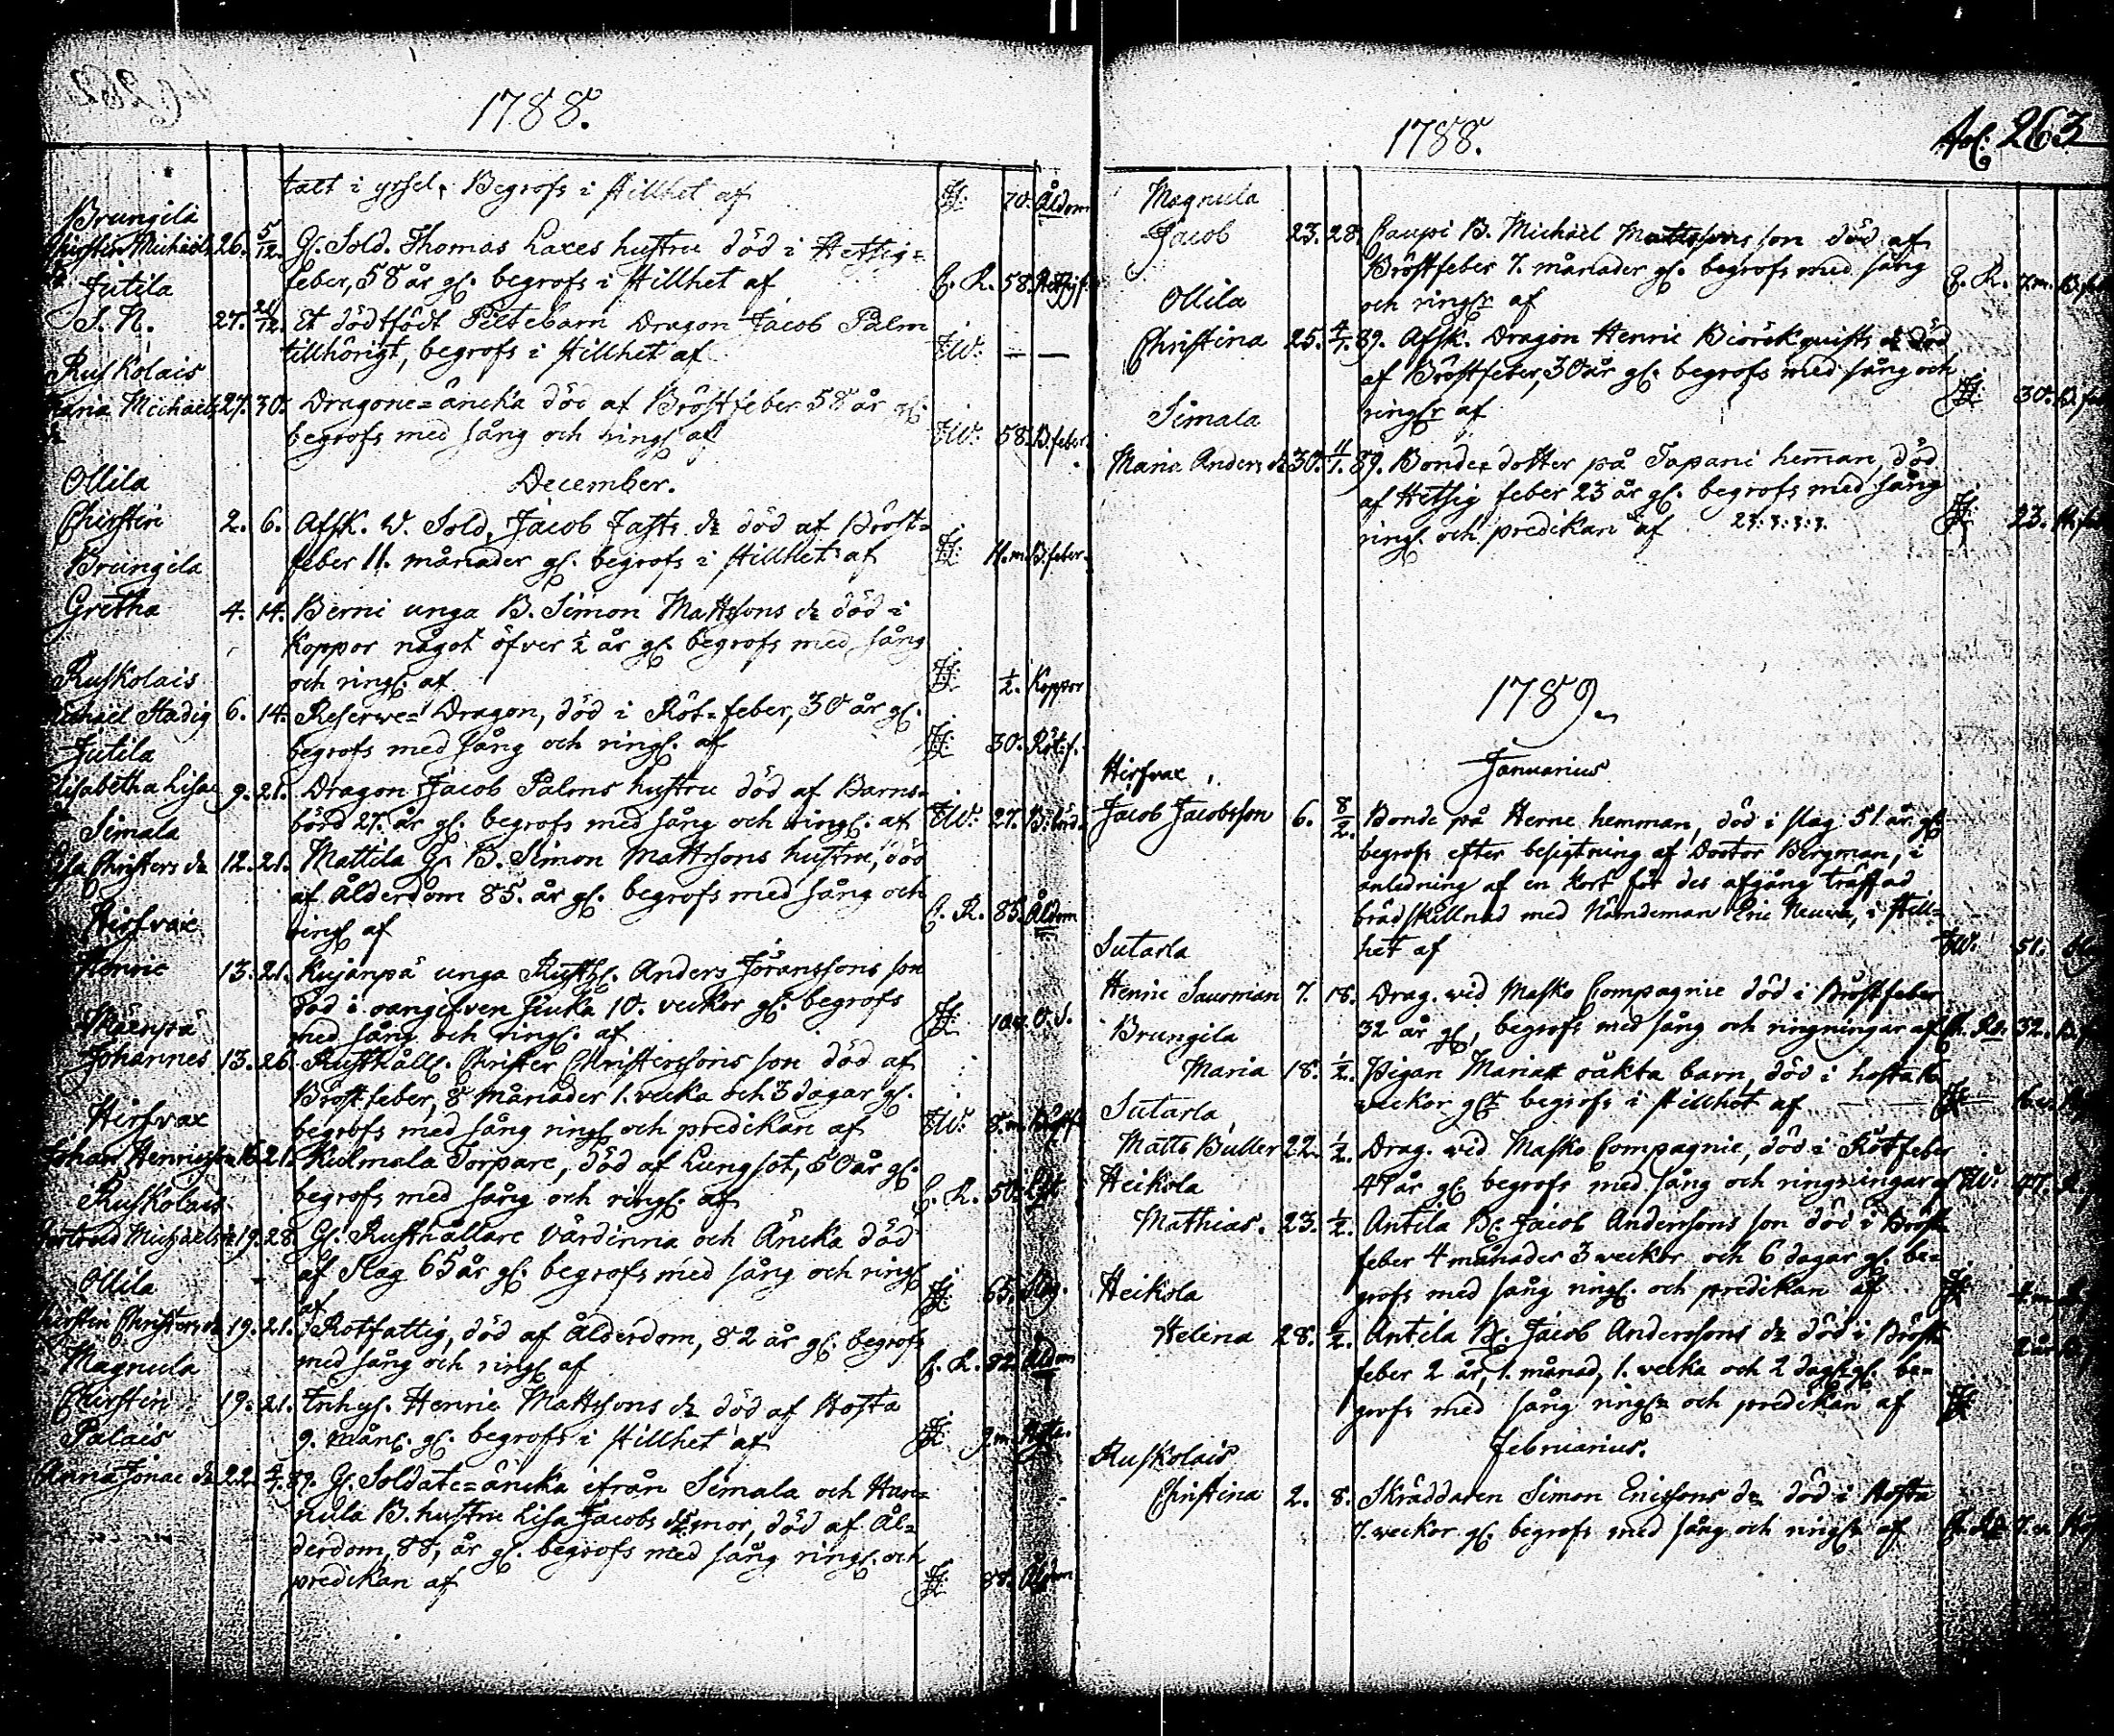 1788.
talt i gssel, Begrofs i stillhet af 70. Åldom
Brungila
Chirstin Michaels 26. 5/12. Gl. Sold. Thomas Laxes hustru död i Hettsig=
feber, 58 år gl. begrofs i stillhet af C. R. 58.
Jutila
S. N. 27. 21/12. Et dödtfödt Piltebarn Dragon Jacob Palm
tillhörigt, begrofs i stillhet af JW: — —
Ruskolais
Maria Michaels 27. 30. Dragone=äncka död af Bröstfeber 58 år gl.
begrofs med sång och ringl. af JW: 58. B.feber.
December.
Ollila
Chirstin 2. 6. Afsk. V. Sold. Jacob Fasts dr död af Bröst=
feber 11. månader gl. begrofs i stillhet af 11.m B.feber.
Brungila
Gretha 4. 14. Berni unga B. Simon Mattssons dr död i
Koppor något öfver ½ år gl. begrofs med sång
och ringl. af ½. Koppor
Ruskolais
Michael Stadig 6. 14. Reserve=Dragon, död i Röt=feber, 30 år gl.
begrofs med sång och ringl. af 30. Röt.f.
Jutila
Elisabetha Lisa 9. 21. Dragon Jacob Palms hustru död af Barns=
börd 27. år gl. begrofs med sång och ringl. af JW: 27. B:börd.
Simala
Lisa Christers dr 12. 21. Mattila Gl. B. Simon Mattssons hustru, död
af Ålderdom 85. år gl. begrofs med sång och
ringl af C. R. 85. Åldom
Hirfvax
Henric 13. 21. Kujanpä unga Rusth. Anders Jöranssons son
död i oangifven siuka 10. veckor gl. begrofs
med sång och ringl. af 10.v. O.S.
Mäenpä
Johannes 13. 26. Rusthåll. Christer Christerssons son död af
Bröstfeber, 8 månader 1. vecka och 3 dagar gl.
begrofs med sång ringl och predikan af JW: 8.m.
Hirfvax
Johan Henricsson 15. 21. Kulmala Torpare, död af Lungsot, 50 år gl.
begrofs med sång och ringl. af C. R. 50.
Ruskolais
Gertrud Michaels dr 19. 28. Gl. Rusthållare Värdinna och Äncka död
af Slag 65 år gl. begrofs med sång och ringl
af 65. Slag.
Ollila
Chirstin Christers dr 19. 21. Rotfattig, död af Ålderdom, 82 år gl. begrofs
med sång och ringl af C. R. 82. Åldom
Magnula
Chirstin 19. 21. Inhys. Henric Mattssons dr död af Hosta
9. mån. gl. begrofs i stillhet af 9.m. Hosta.
Palais
Anna Jonae dr 22. 4/1. 89. Gl. Soldate=äncka ifrån Simala och Han=
nula B. hustru Lisa Jacobs drs mor, död af Ål=
derdom, 88, år gl. begrofs med sång ringl. och
predikan af 88. Åldom
1788.
Fol: 263
Magnula
Jacob 23. 28. Caupi B. Michael Mattssons son död af
Bröstfeber 7. månader gl. begrofs med sång
och ringl. af C. R. 7.m.
Ollila
Christina 25. 4/1. 89. Afsk. Dragon Henric Biörckquists död
af Bröstfeber, 30 år gl. begrofs med sång och
ringl. af 30.
Simala
Maria Anders dr 30. 11/1. 89. Bonde dotter på Tapani heman, död
af Hetsig feber 23 år gl. begrofs med sång
ringl. och predikan af 23.
1789.
Januarius
Hirfvax
Jacob Jacobsson 6. 8/2. Bonde på Herne hemman, död i slag 51 år gl
begrofs efter besigtning af Doctor Bergman, i
anledning af en kort för des afgång träffad
brådskillnad med Nämdeman Eric i still=
het af JW. 51.
Sutarla
Henric Saurman 7. 18. Drag. vid Masko Compagnie död i Bröstfeber
32 år gl, begrofs med sång och ringningar af 32.
Brungila
Maria 18. 1/2. Pigan Marias oäkta barn, död i hosta
veckor gl. begrofs i stillhet af
Sutarla
Matts Buller 22. 1/2. Drag. vid Masko Compagnie, död i Rötfeber
47 år gl. begrofs med sång och ringningar af JW. 47.
Heikola
Mathias. 23. 1/2. Antila B. Jacob Anderssons son död i Bröst
feber 4 månader 3 veckor och 6 dagar gl. be=
grofs med sång ringl. och predikan af
Heikola
Helena 28. Antila B. Jacob Anderssons dr död i Bröst
feber 2 år, 1. månad, 1. vecka och 2 dagr gl. be=
grofs med sång ringl. och predikan af
Februarius.
Ruskolais
Christina 2. 8. Skräddaren Simon Ericssons dr död i Hosta
7. veckor gl. begrofs med sång och ringl. af 7.v.